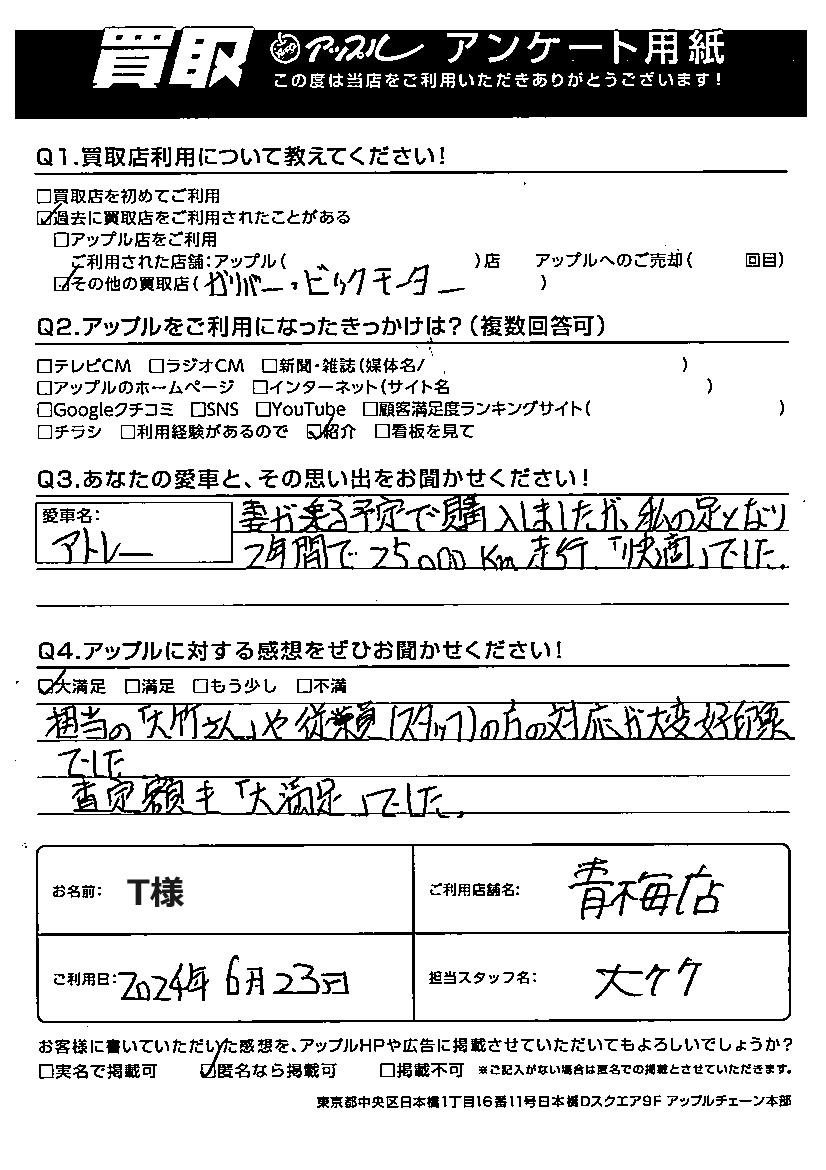 買取 アップル アンケート用紙
この度は当店をご利用いただきありがとうございます!
Q1.買取店利用について教えてください!
□買取店を初めてご利用
☑過去に買取店をご利用されたことがある
□アップル店をご利用
ご利用された店舗:アップル( )店 アップルへのご売却( 回目)
☑その他の買取店(ガリバー・ビックモーター )
Q2.アップルをご利用になったきっかけは?(複数回答可)
□テレビCM □ラジオCM □新聞・雑誌(媒体名/ )
□アップルのホームページ □インターネット(サイト名 )
□Googleクチコミ □SNS □YouTube □顧客満足度ランキングサイト( )
□チラシ □利用経験があるので ☑紹介 □看板を見て
Q3.あなたの愛車と、その思い出をお聞かせください!
愛車名:
アトレー
妻が乗る予定で購入しましたが、私の足となり
2年間で25,000Km走行「快適」でした。
Q4.アップルに対する感想をぜひお聞かせください!
☑大満足 □満足 □もう少し □不満
担当の「大竹さん」や従業員(スタッフ)の方の対応が大変好印象
でした
査定額も「大満足」でした。
お名前: T様
ご利用店舗名: 青梅店
ご利用日:2024年6月23日
担当スタッフ名: 大ケケ
お客様に書いていただいた感想を、アップルHPや広告に掲載させていただいてもよろしいでしょうか?
□実名で掲載可 ☑匿名なら掲載可 □掲載不可 ※ご記入がない場合は匿名での掲載とさせていただきます。
東京都中央区日本橋1丁目16番11号日本橋Dスクエア9F アップルチェーン本部